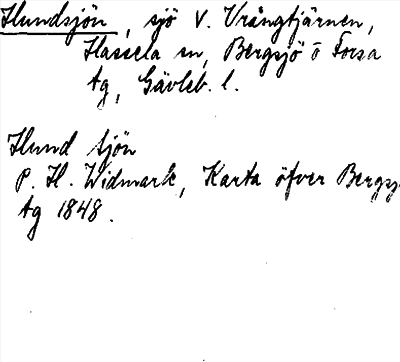 Hundsjön, sjö V. Vrångtjärnen,
Hassela sn, Bergsjö o Forsa
tg, Gävleb. l.
Hund sjön
P. H. Widmark, Karta öfver Bergsj
tg 1848.